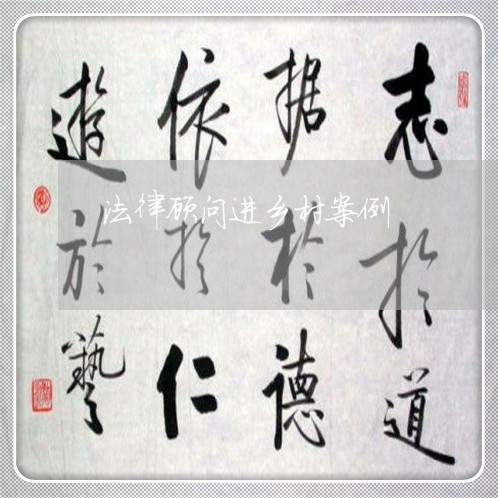 志於道
据於德
依於仁
遊於藝
法律顾问进乡村案例